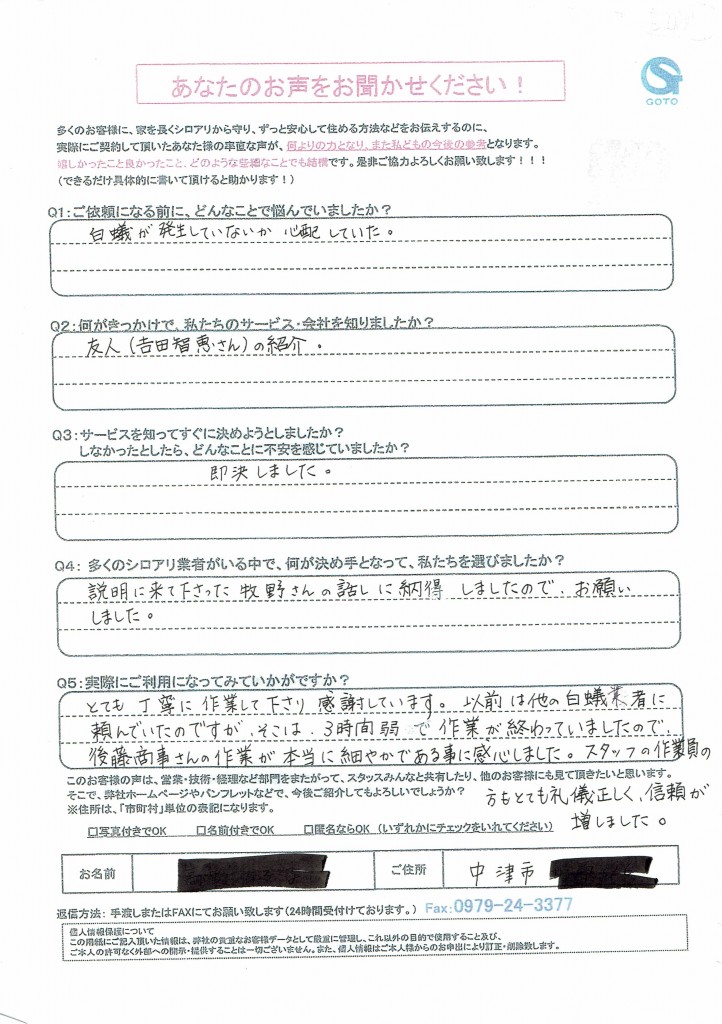 GOTO
あなたのお声をお聞かせください！
多くのお客様に、家を長くシロアリから守り、ずっと安心して住める方法などをお伝えするのに、
実際にご契約して頂いたあなた様の率直な声が、何よりの力となり、また私どもの今後の参考となります。
嬉しかったこと良かったこと、どのような些細なことでも結構です。是非ご協力よろしくお願い致します！！！
（できるだけ具体的に書いて頂けると助かります！）
Q1：ご依頼になる前に、どんなことで悩んでいましたか？
白蟻が発生していないか心配していた。
Q2：何がきっかけで、私たちのサービス・会社を知りましたか？
友人（吉田智恵さん）の紹介。
Q3：サービスを知ってすぐに決めようとしましたか？
しなかったとしたら、どんなことに不安を感じていましたか？
即決しました。
Q4： 多くのシロアリ業者がいる中で、何が決め手となって、私たちを選びましたか？
説明に来て下さった牧野さんの話しに納得しましたので、お願い
しました。
Q5：実際にご利用になってみていかがですか？
とても丁寧に作業して下さり感謝しています。以前は他の白蟻業者に
頼んでいたのですが、そこは、3時間弱で作業が終わっていましたので、
後藤商事さんの作業が本当に細やかである事に感心しました。スタッフの作業員の
方もとても礼儀正しく、信頼が
増しました。
このお客様の声は、営業・技術・経理など部門をまたがって、スタッスみんなと共有したり、他のお客様にも見て頂きたいと思います。
そこで、弊社ホームページやパンフレットなどで、今後ご紹介してもよろしいでしょうか？
※住所は、「市町村」単位の表記になります。
□写真付きでOK □名前付きでOK □匿名ならOK （いずれかにチェックをいれてください）
お名前 ご住所 中津市
返信方法： 手渡しまたはFAXにてお願い致します（24時間受付けております。） Fax：0979-24-3377
個人情報保護について
この用紙にご記入頂いた情報は、弊社の貴重なお客様データとして厳重に管理し、これ以外の目的で使用すること及び、
ご本人の許可なく外部への開示・提供することは一切ございません。また、個人情報はご本人様からのお申出により訂正・削除致します。